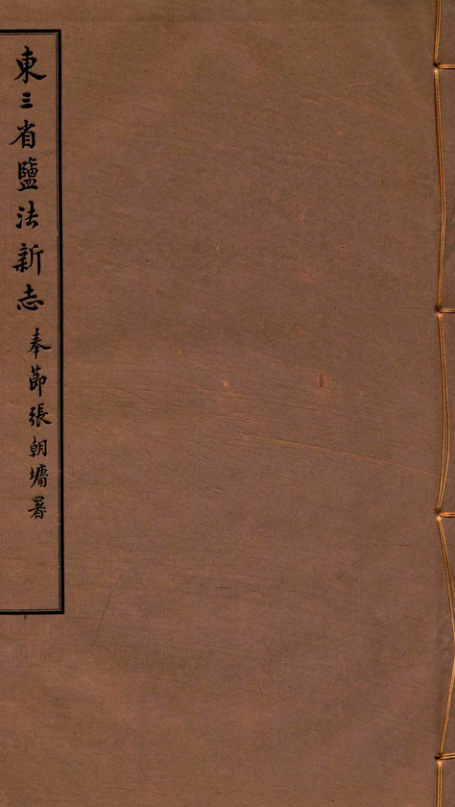 東三省鹽法新志
奉節張朝墉署